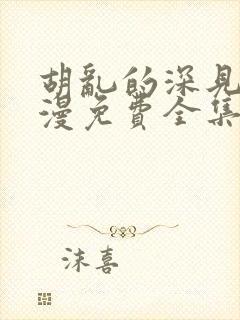 胡亂的深見
漫免費全集
沫喜